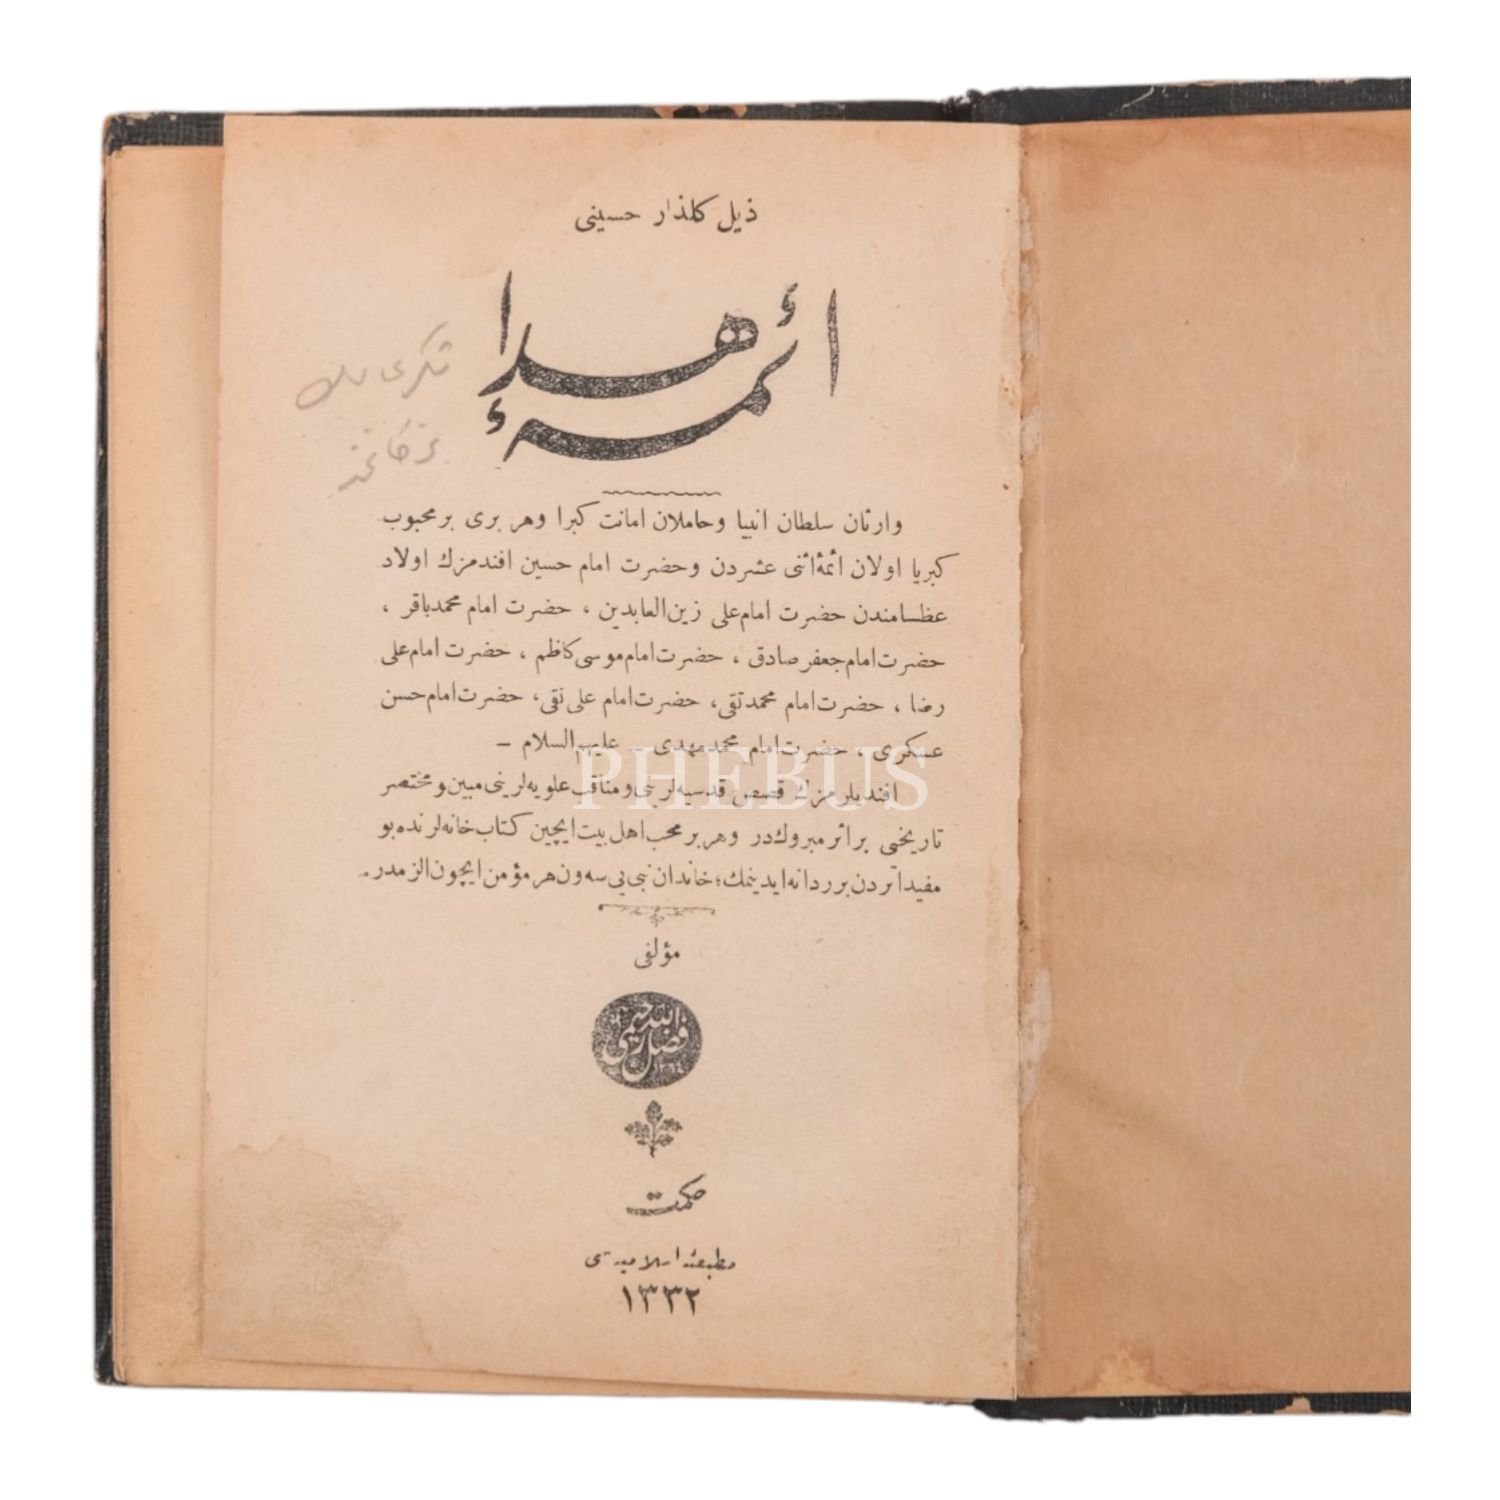 ذيل كلذار حسينى
ائمهٔ هدا
وارثان سلطان انبيا وحاملان امانت كبرا وهر برى بر محبوب
كبريا اولان ائمهٔ اثنى عشردن وحضرت امام حسين افندمزك اولاد
عظامندن حضرت امام على زين العابدين ، حضرت امام محمد باقر ،
حضرت امام جعفر صادق ، حضرت امام موسى كاظم ، حضرت امام على
رضا ، حضرت امام محمد تقى، حضرت امام على نقى، حضرت امام حسن
عسكرى ، حضرت امام محمد مهدى - عليهم السلام -
افنديلرمزك قصص قدسيه لرينى ومناقب علويه لرينى مبين ومختصر
تاريخى بر اثر مبروك در وهر بر محب اهل بيت ايچين كتاب خانه لرنده بو
مفيد اثردن بر ردانه ايدينمك؛ خاندان نبى يى سه ون هر مؤمن ايچون الزمدر.
مؤلفى
فضل الله رحيمى
حكمت
مطبعهٔ اسلاميه سى
١٣٣٢
PHEBUS